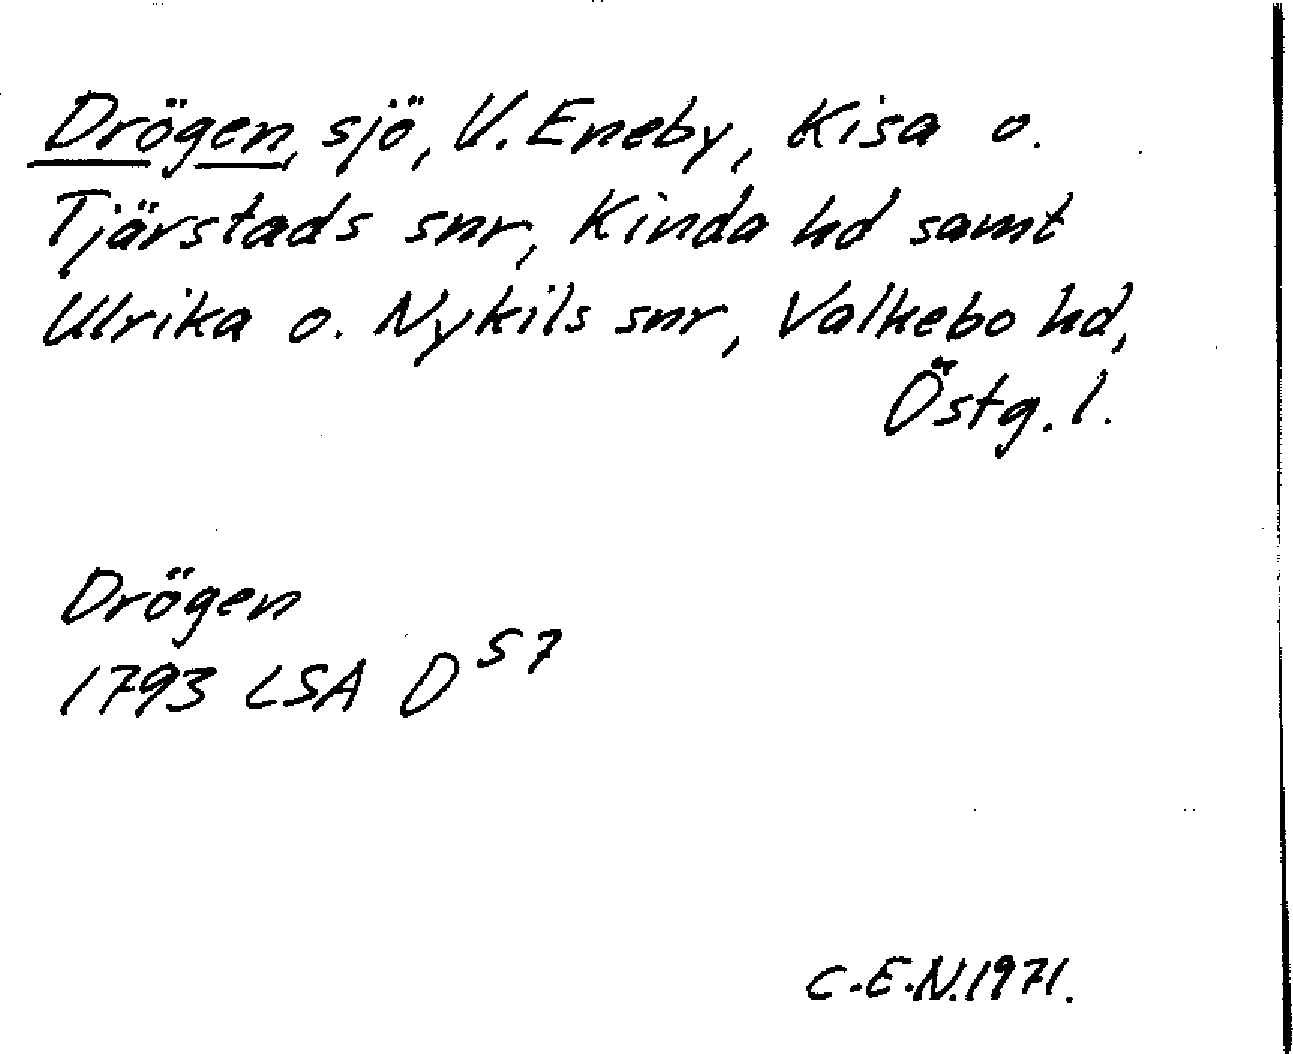 Drögen, sjö, V. Eneby, Kisa o.
Tjärstads snr, Kinda hd samt
Ulrika o. Nykils snr, Valkebo hd,
Östg. l.
Drögen
1793 LSA D S7
C.E.N. 1971.